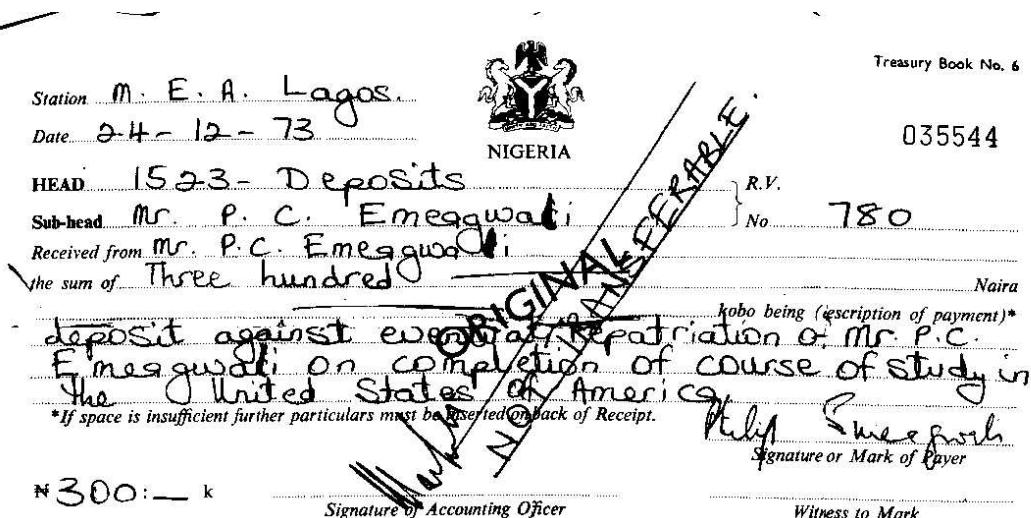 Treasury Book No. 6
Station M. E. A. Lagos.
Date 24 - 12 - 73
NIGERIA
035544
HEAD 1523 - Deposits
R.V.
Sub-head Mr. P. C. Emeagwali
No 780
Received from Mr. P. C. Emeagwali
the sum of Three hundred Naira
kobo being (escription of payment)*
deposit against eventual repatriation of Mr. P.C.
Emeagwali on completion of course of study in
the United States of America
*If space is insufficient further particulars must be inserted on back of Receipt.
ORIGINAL
NOT TRANSFERABLE.
Philip Emeagwali
Signature or Mark of Payer
₦ 300:— k
Signature of Accounting Officer
Witness to Mark